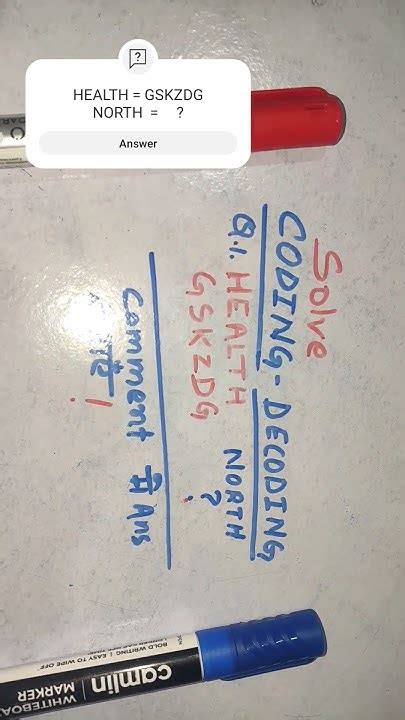 HEALTH = GSKZDG
NORTH = ?
Answer
Solve
CODING-DECODING
Q.1. HEALTH NORTH
GSKZDG ?
Comment में Ans
!
camlin
WHITEBOA
MARKER
BOLD WRITING | EASY TO WIPE OFF